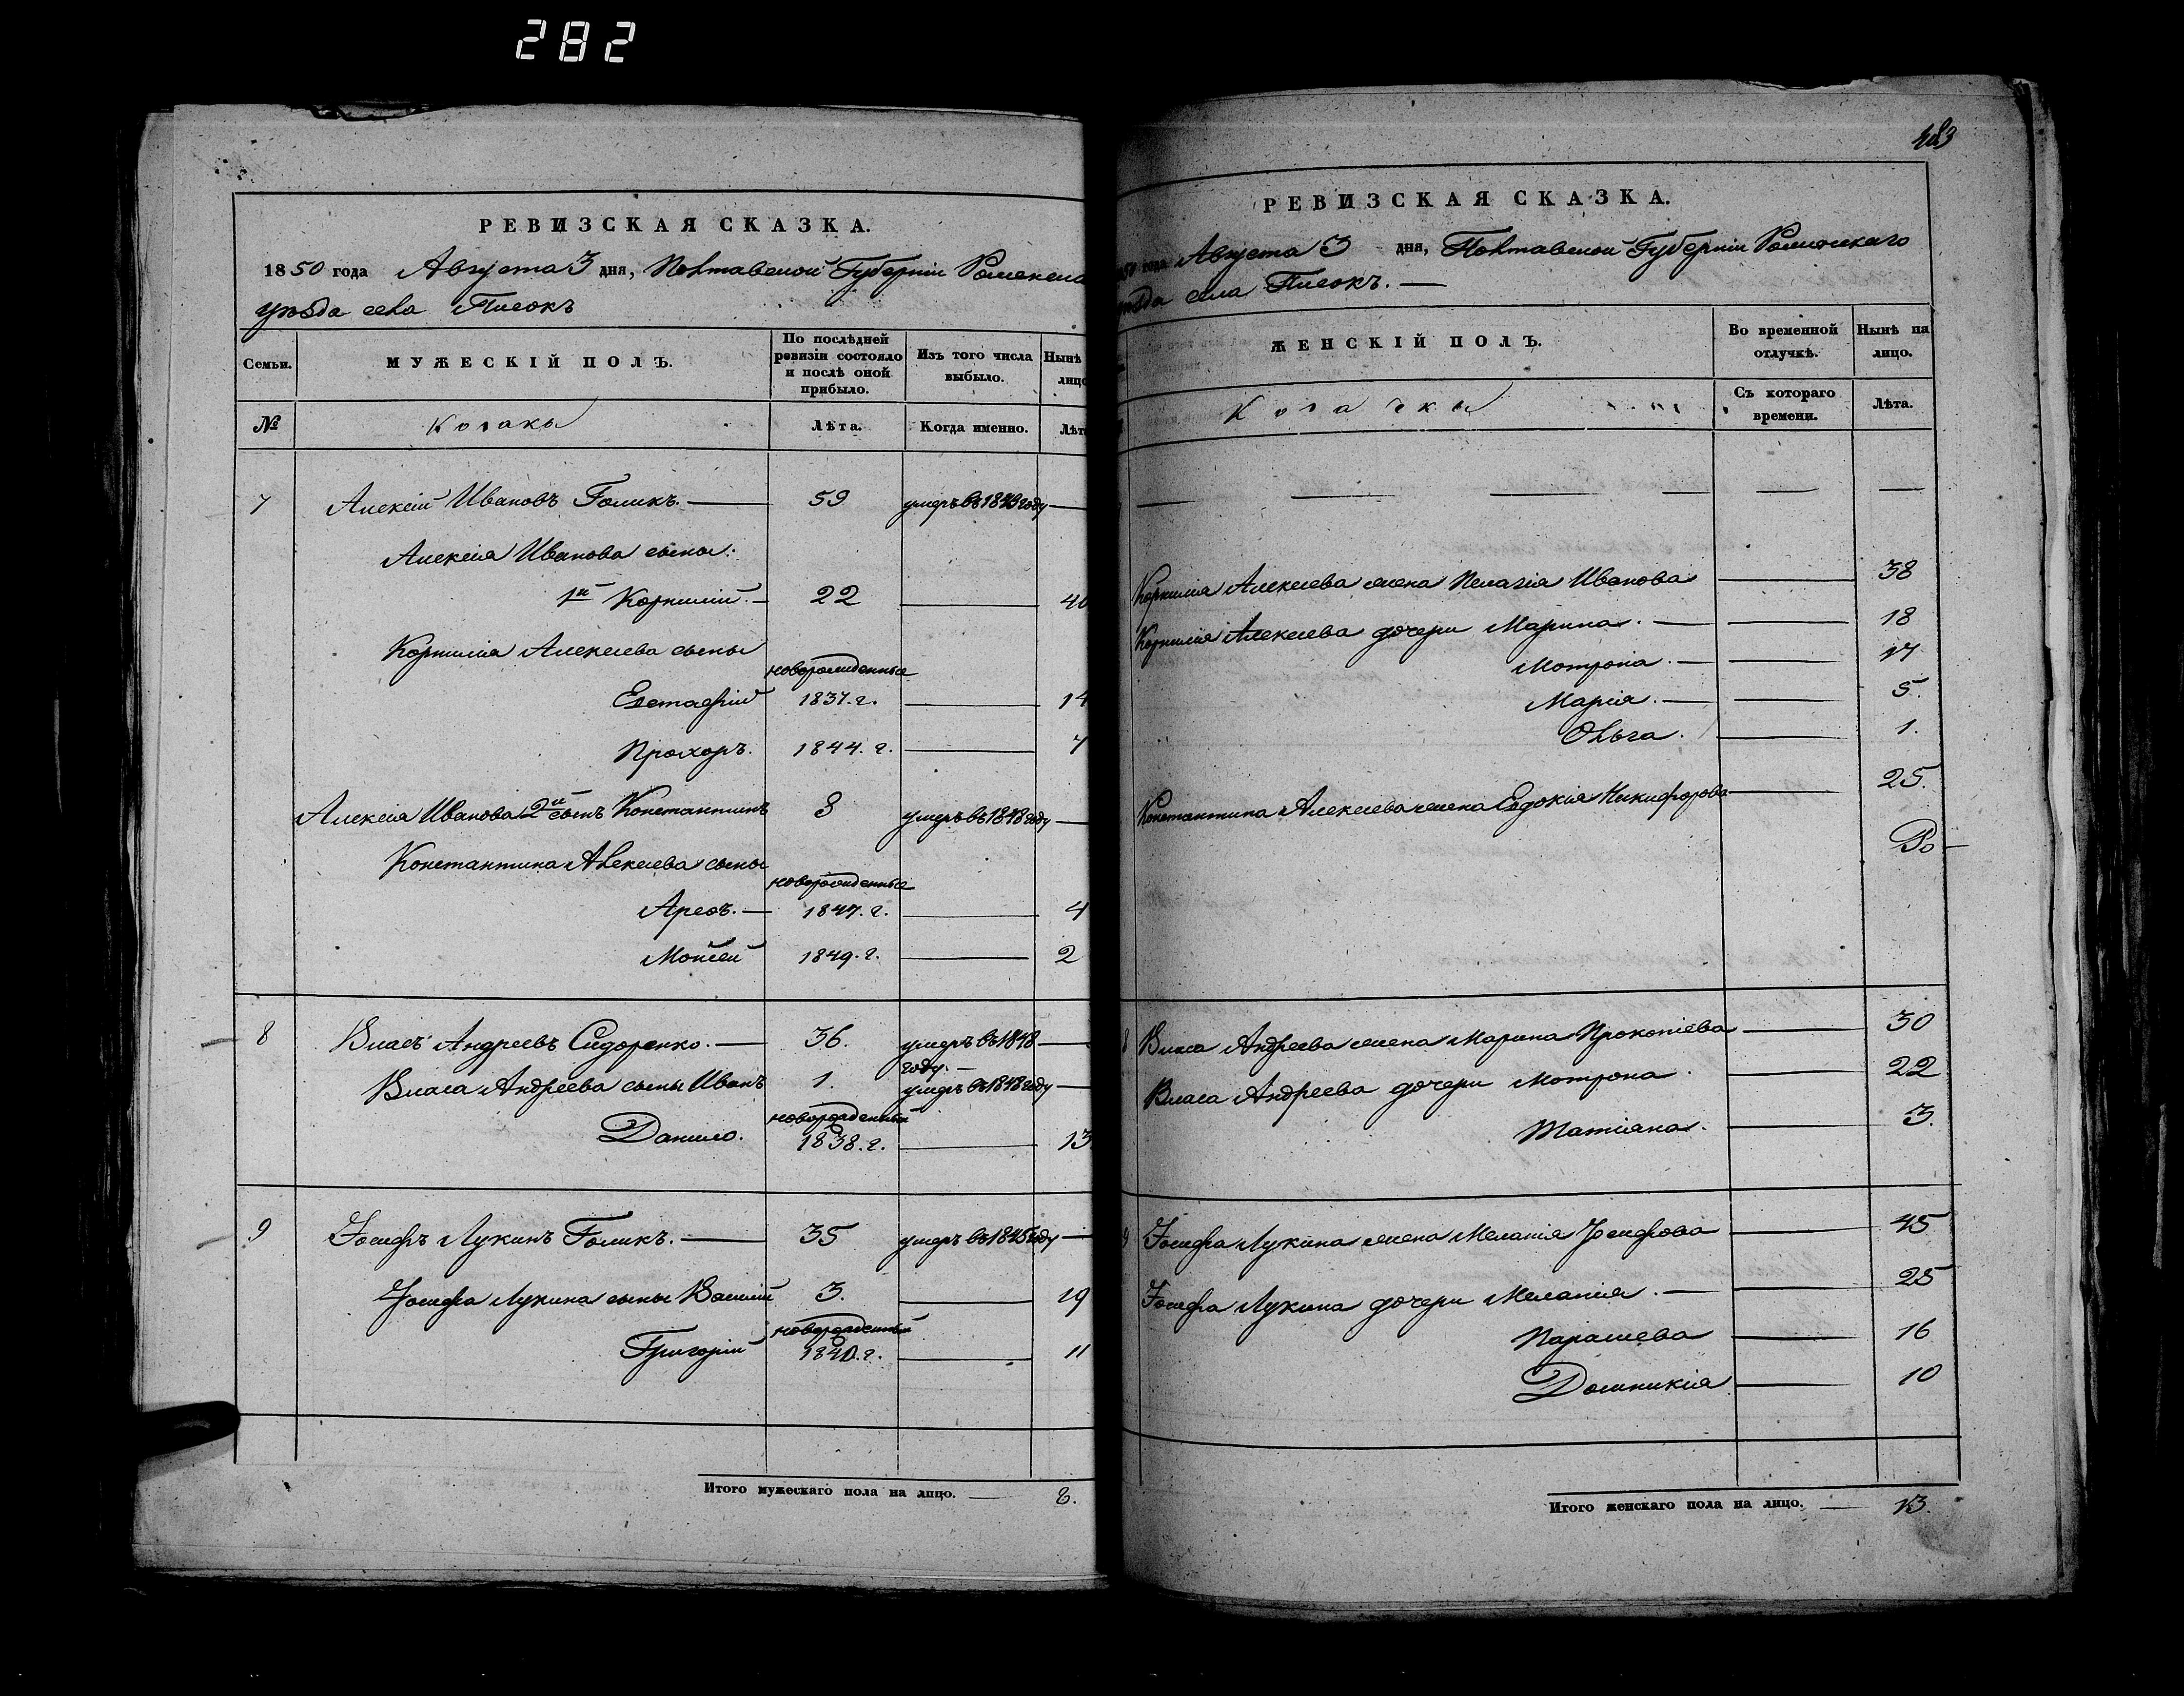 282
РЕВИЗСКАЯ СКАЗКА.
1850 года Августа 3 дня, Полтавской Губернии
уѣзда села Песокъ
Семьи.
МУЖЕСКІЙ ПОЛЪ.
По послѣдней ревизіи состояло и послѣ оной прибыло.
Изъ того числа выбыло.
Нынѣ
лицо
№
Козаки
Лѣта.
Когда именно.
7 Алексѣй Ивановъ Голикъ. 59 умеръ въ 1843 году
Алексѣя Иванова сыны:
1й Корнилій. 22 40
Корнилія Алексѣева сыны
новорожденные
Евстафій 1837. г. 14
Прохоръ. 1844. г. 7
Алексѣя Иванова 2й сынъ Константинъ 8 умеръ въ 1848 году
Константина Алексѣева сыны
новорожденные
1847. г. 4
Мойсей 1849. г. 2
8 Власъ Андреевъ Сидоренко. 36. умеръ въ 1848 году.
Власа Андреева сыны Иванъ 1. умеръ въ 1848 году
новорожденный
Данило. 1838. г. 13
9 Іосифъ Лукинъ Голикъ. 35 умеръ въ 1845 году
Іосифа Лукина сыны Василій 3. 19
новорожденный
Григорій 1840. г. 11
Итого мужескаго пола на лицо. 8.
483
РЕВИЗСКАЯ СКАЗКА.
Августа 3 дня, Полтавской Губерніи Роменскаго
села Песокъ.
ЖЕНСКІЙ ПОЛЪ.
Во временной отлучкѣ.
Нынѣ на лицо.
Козачки
Съ котораго времени.
Лѣта.
Корнилія Алексѣева жена Пелагія Иванова 38
Корнилія Алексѣева дочери Марина. 18
Мотрона. 17
Марія. 5.
Ольга. 1.
Константина Алексѣева жена Евдокія Никифорова 25.
8 Власа Андреева жена Марина Прокопіева 30
Власа Андреева дочери Мотрона. 22
Татіана. 3.
9 Іосифа Лукина жена Меланія Іосифова 45
Іосифа Лукина дочери Меланія. 25
Параскева 16
Домникія 10
Итого женскаго пола на лицо. 13.